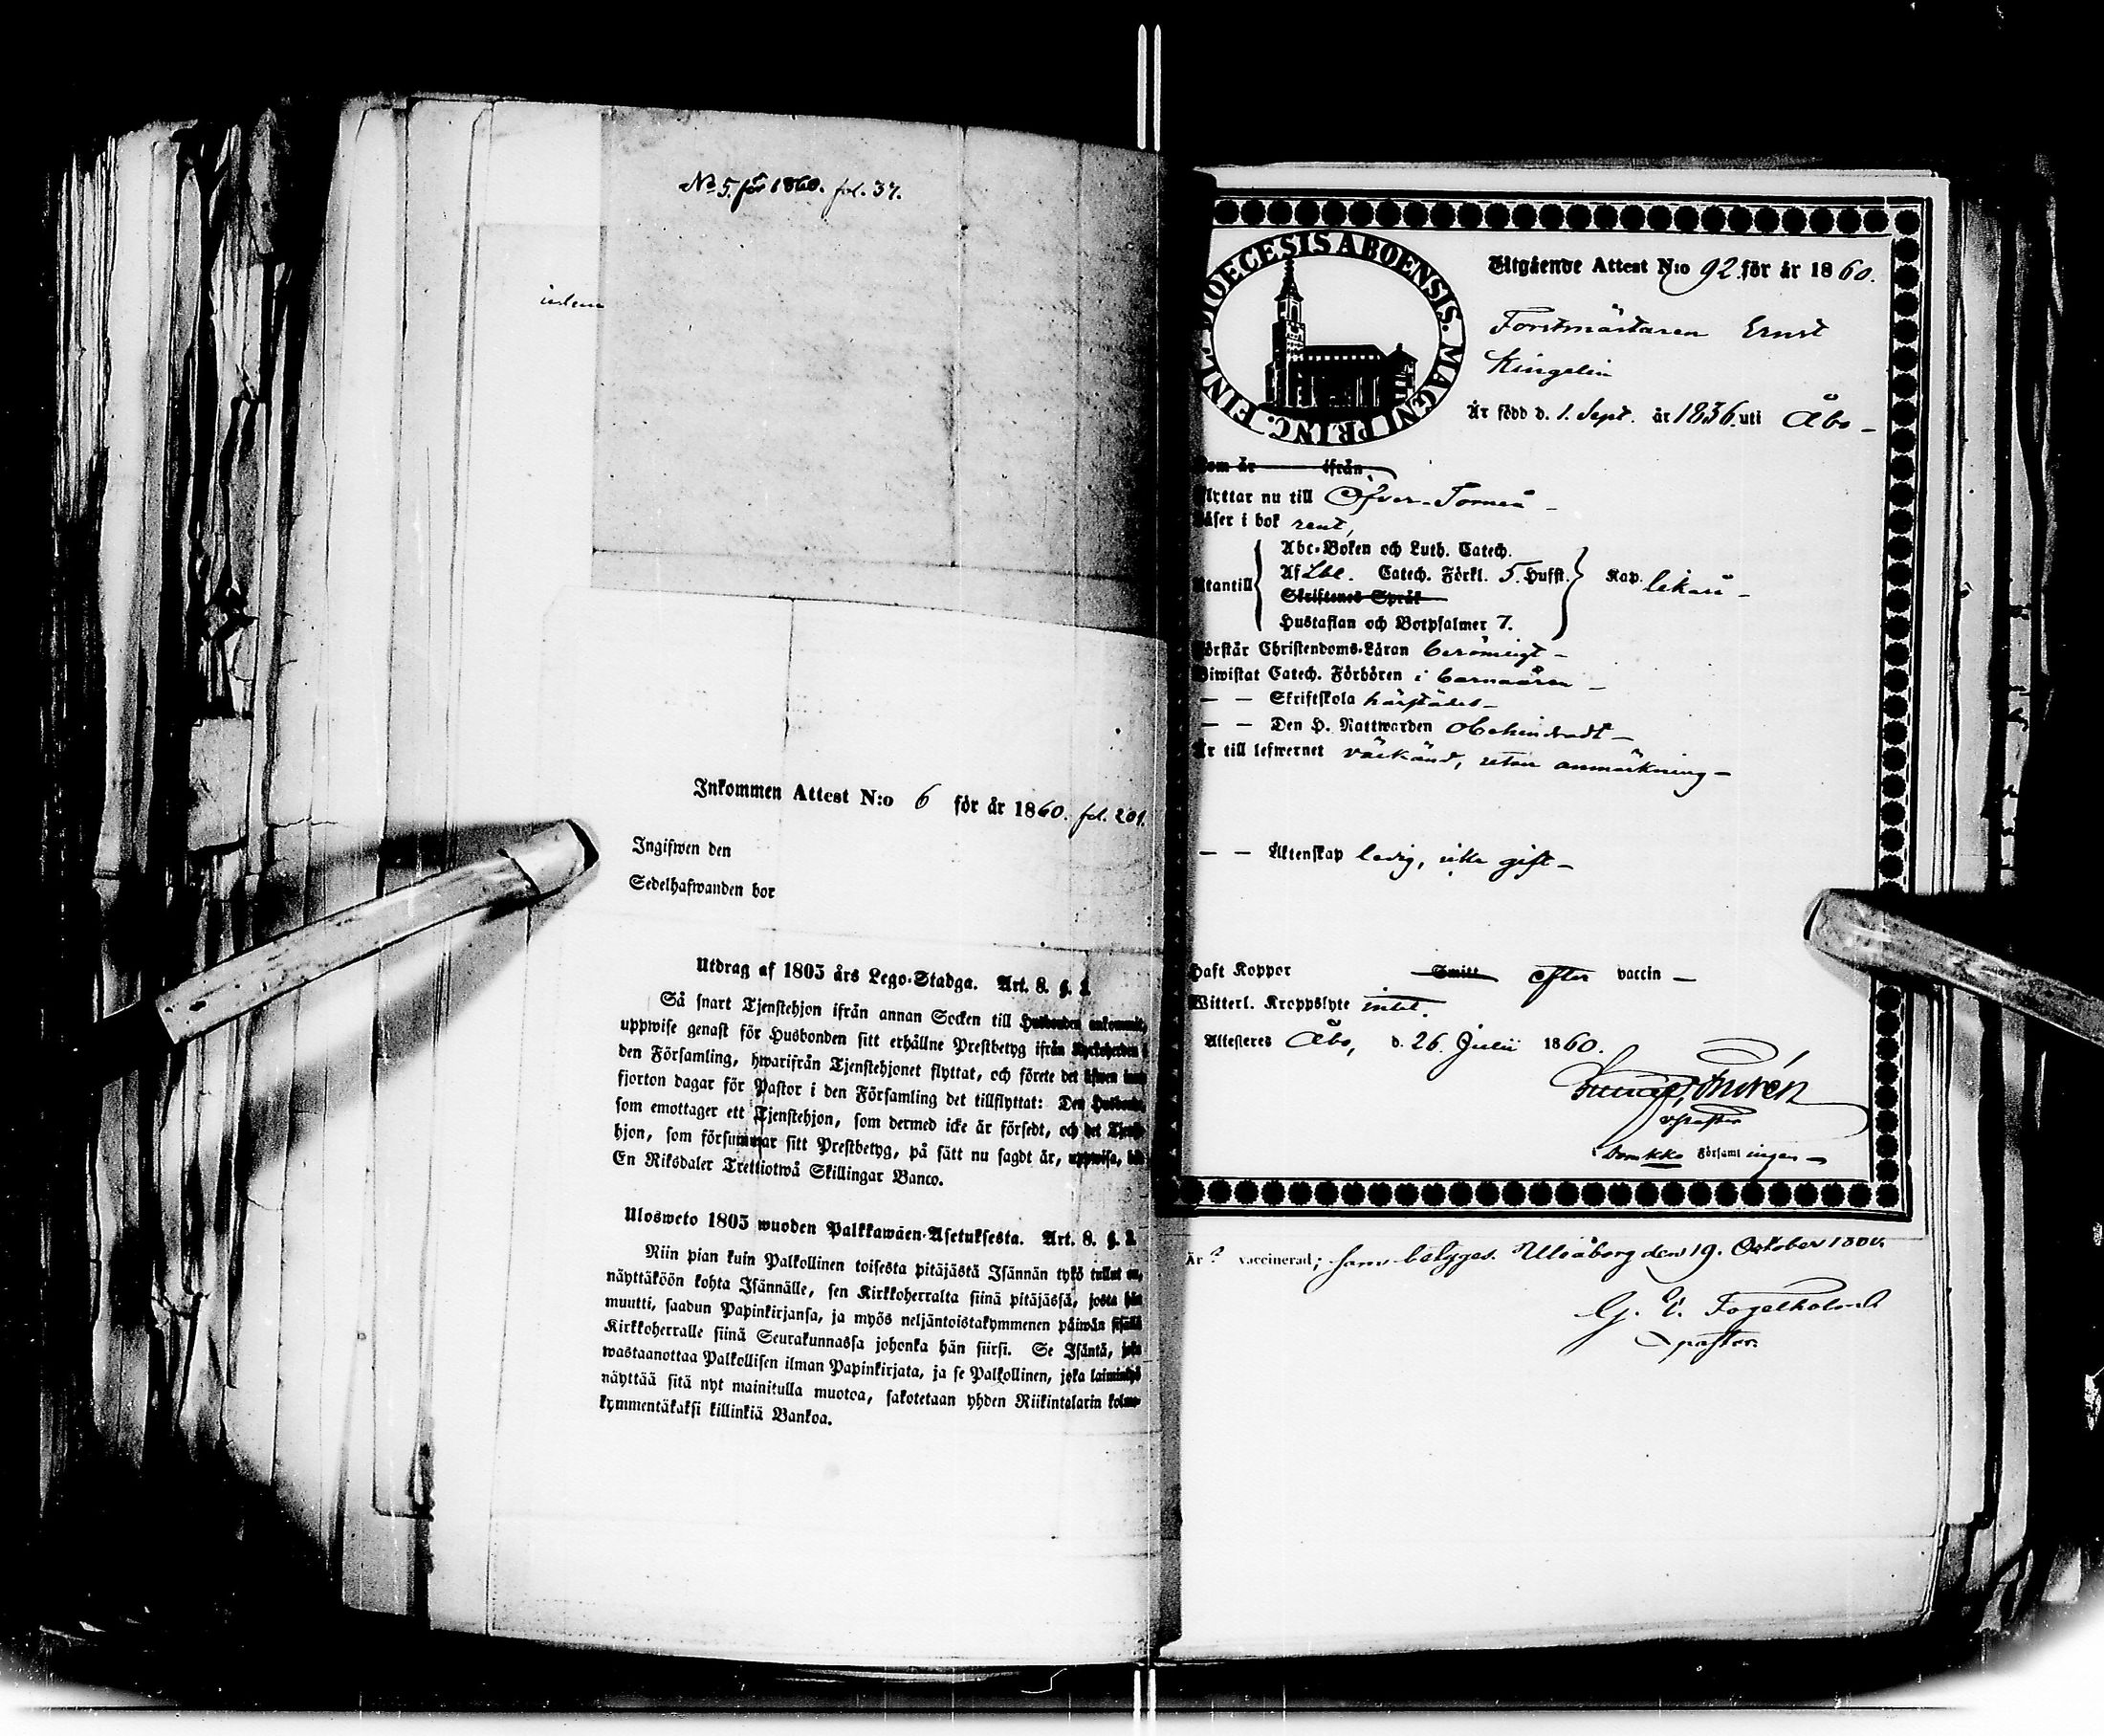 No 5. för 1860. fol. 37.
Inkommen Attest N:o 6 för år 1860. fol. 201.
Ingifwen den
Sedelhafwanden bor
Utdrag af 1805 års Lego-Stadga. Art. 8. §. 2
Så snart Tjenstehjon ifrån annan Socken till Husbonden ankommit,
uppwise genast för Husbonden sitt erhållne Prestbetyg ifrån Kyrkoherden i
den Församling, hwarifrån Tjenstehjonet flyttat, och förete det äfwen inom
fjorton dagar för Pastor i den Församling det tillflyttat: Den Husbonde,
som emottager ett Tjenstehjon, som dermed icke är försedt, och det Tjenste-
hjon, som försummar sitt Prestbetyg, på sätt nu sagdt är, uppwisa, böte
En Riksdaler Trettiotwå Skillingar Banco.
Ulosweto 1805 wuoden Palkkawäen-Asetuksesta. Art. 8. §. 2.
Niin pian kuin Palkollinen toisesta pitäjästä Isännän tykö tullut on,
näyttäköön kohta Isännälle, sen Kirkkoherralta siinä pitäjässä, josta hän
muutti, saadun Papinkirjansa, ja myös neljäntoistakymmenen päiwän sisällä
Kirkkoherralle siinä Seurakunnassa johonka hän siirsi. Se Isäntä, joka
wastaanottaa Palkollisen ilman Papinkirjata, ja se Palkollinen, joka laiminlyö
näyttää sitä nyt mainitulla muotoa, sakotetaan yhden Riikintalarin kolme-
kymmentäkaksi killinkiä Bankoa.
DIOECESIS ABOENSIS. MAGNI PRINC. FINL.
Utgående Attest N:o 92 för år 1860.
Forstmästaren Ernst
Kingelin
Är född d. 1. Sept. år 1836 uti Åbo -
Som är ifrån
Flyttar nu till Öfver-Torneå -
Läser i bok rent,
Abc-Boken och Luth. Catech.
Utantill Af Lbl. Catech. Förkl. 5. Hufst. Kap. likaså -
Skriftenes Språk
Hustaflan och Botpsalmer 7.
Förstår Christendoms-Läran berömligt -
Biwistat Catech. Förhören i barnaåren -
— — Skriftskola härstädes -
— — Den H. Nattwarden obehindradt -
Är till lefwernet välkänd, utan anmärkning -
— — Äktenskap ledig, icke gift -
Haft Koppor Smitt efter vaccin -
Witterl. Kroppslyte intet.
Attesteres Åbo, d. 26 Julii 1860.
v. pastor
Församl
Är vaccinerad; som betygas. Uleåborg den 19. October 1860.
G. E. Fogelholm
pastor.